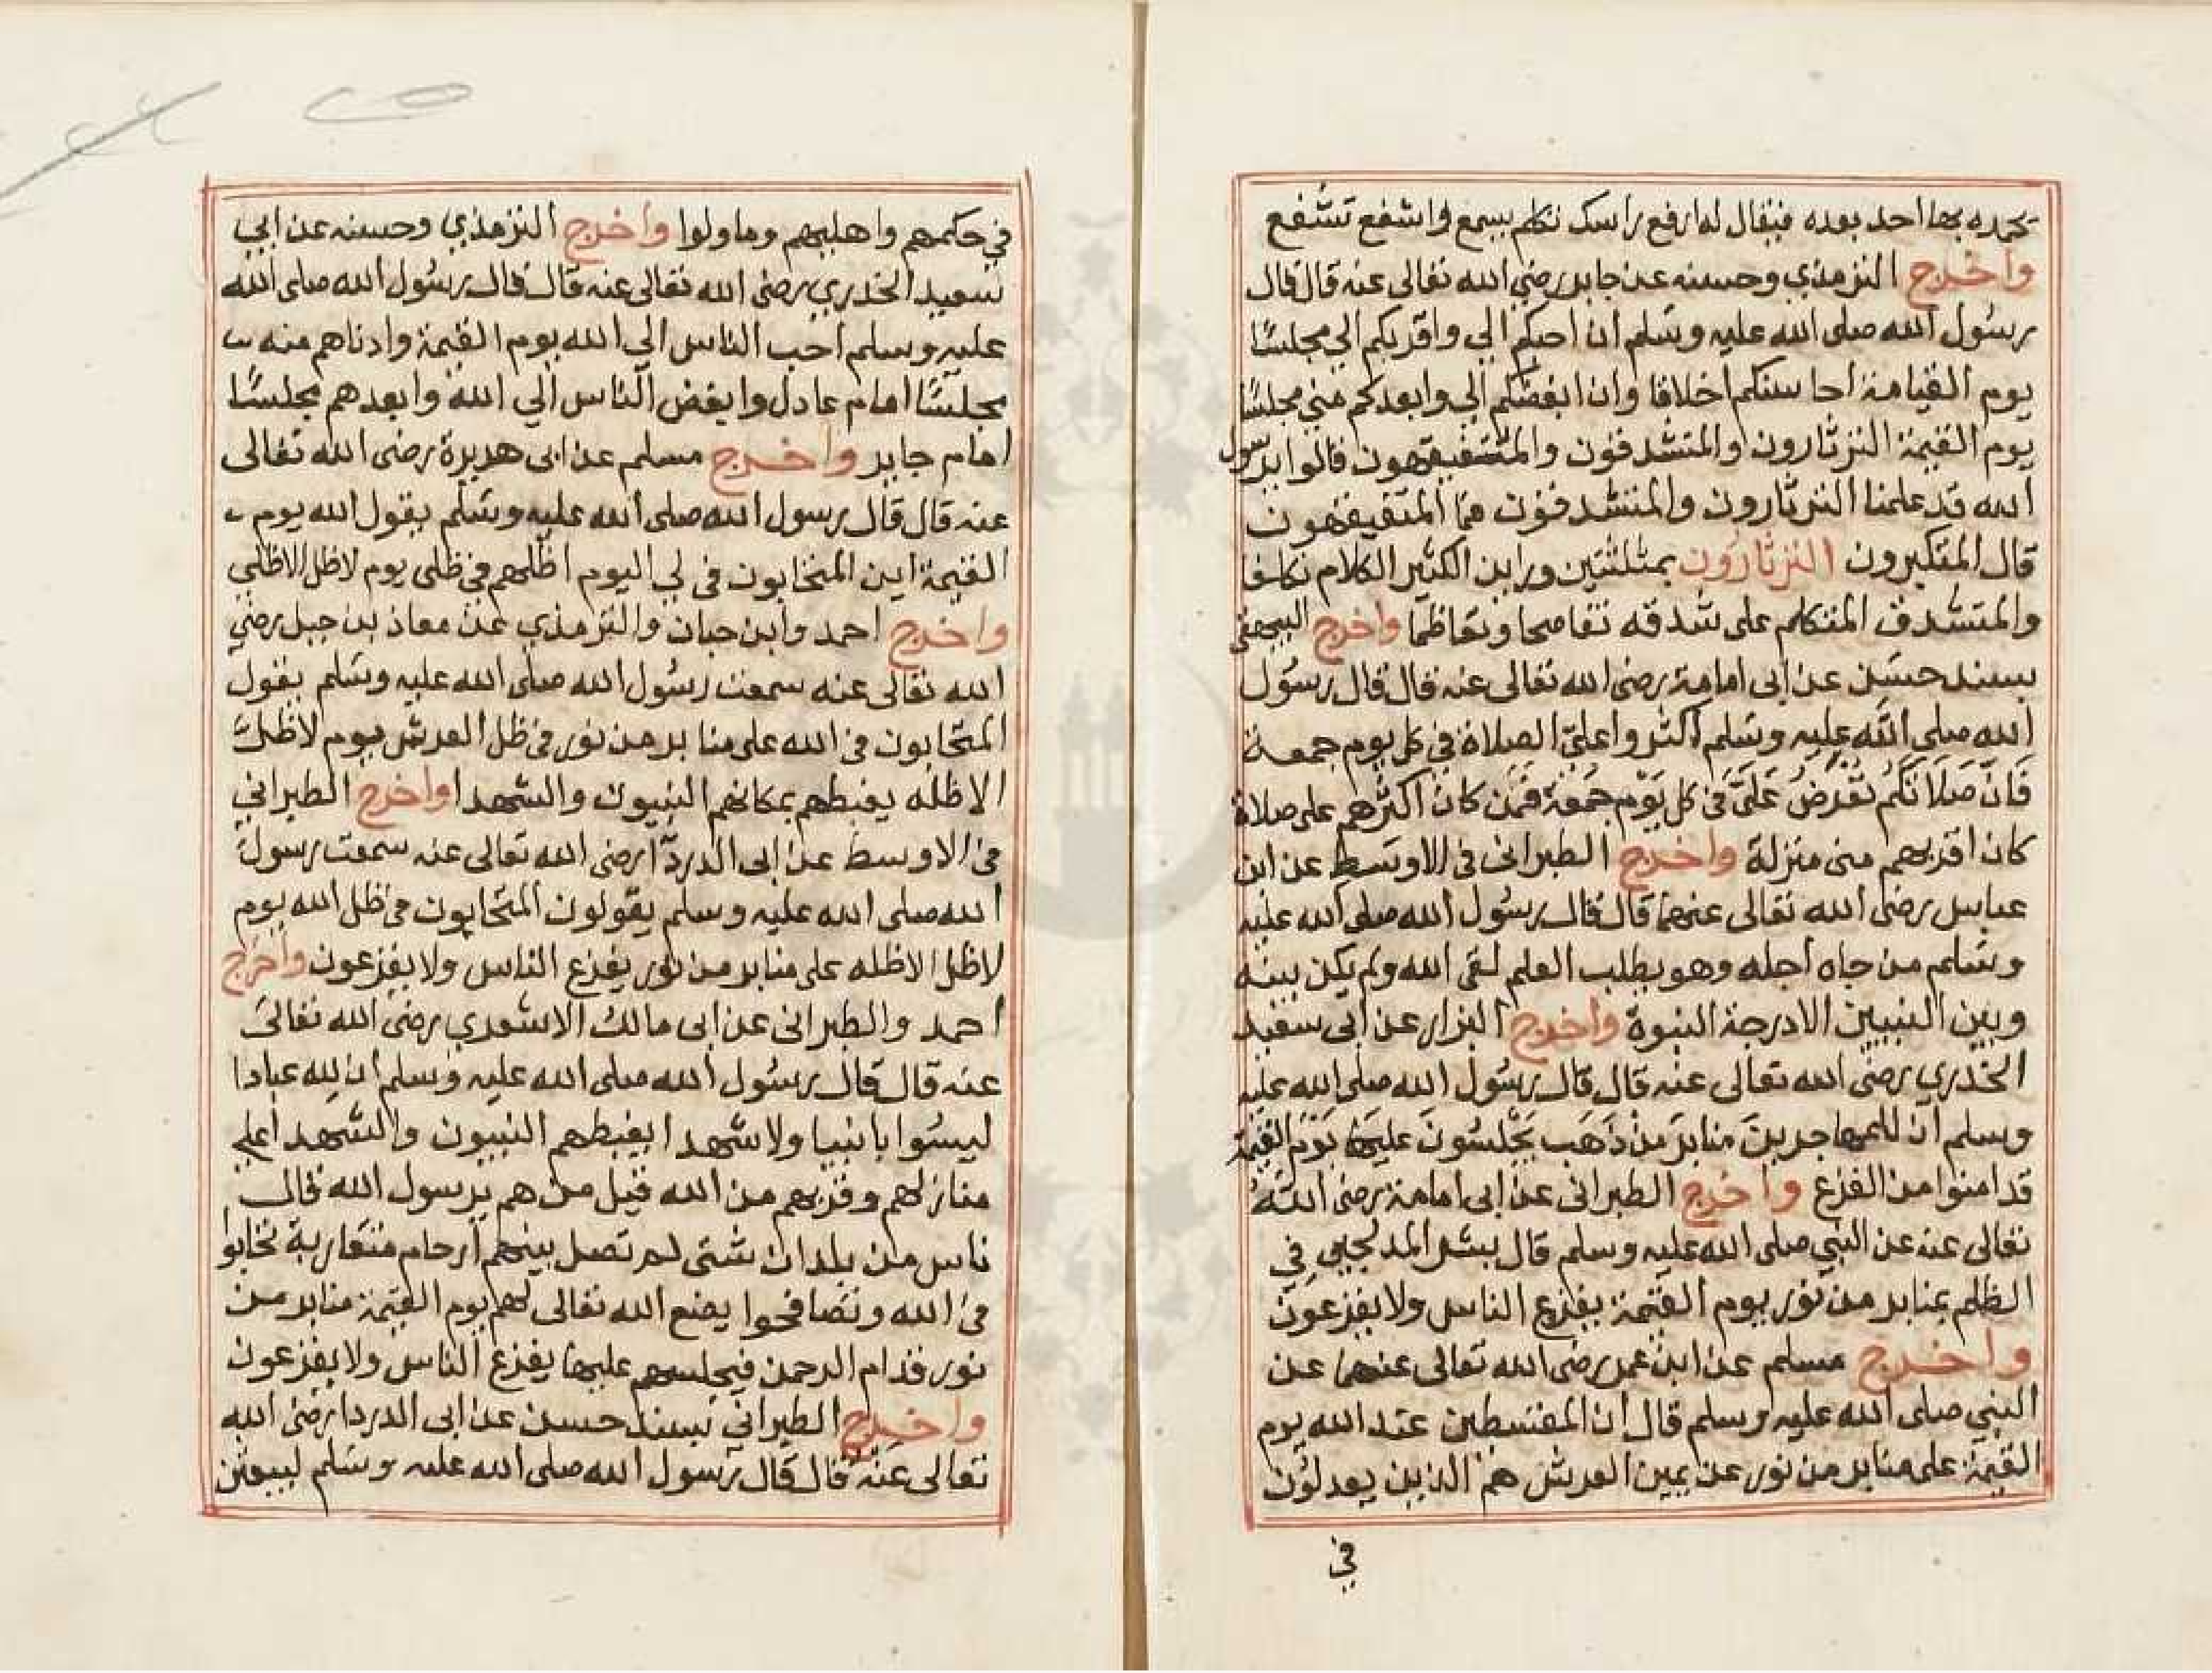 يحمده بها احد بعده فيقال له ارفع راسك تكلم يسمع واشفع تشفع
واخرج الترمذي وحسنه عن جابر رضي الله تعالى عنه قال قال
رسول الله صلى الله عليه وسلم ان احبكم الي واقربكم الي مجلسا
يوم القيامة احاسنكم اخلاقا وان ابغضكم الي وابعدكم مني مجلسا
يوم القيمة الثرثارون والمتشدقون والمتفيقهون قالوا يرسول
الله قد علمنا الثرثارون والمتشدقون فما المتفيقهون
قال المتكبرون الثرثارون بمثلثتين وراين الكثير الكلام تكلفا
والمتشدق المتكلم على شدقه تفاصحا وتعاظما واخرج البيهقي
بسند حسن عن ابي امامة رضي الله تعالى عنه قال قال رسول
الله صلى الله عليه وسلم اكثروا علي الصلاة في كل يوم جمعة
فَانَّ صَلَاتكُم تُعْرَضُ عَلَيَّ في كل يَوْم جُمُعَة فمَن كان اكثرهم على صلاة
كان اقربهم منى منزلة واخرج الطبراني في الاوسط عن ابن
عباس رضي الله تعالى عنهما قال قال رسول الله صلى الله عليه
وسلم من جاه اجله وهو يطلب العلم لقى الله ولم يكن بينه
وبين النبيين الا درجة النبوة واخرج البزار عن ابي سعيد
الخدري رضي الله تعالى عنه قال قال رسول الله صلى الله عليه
وسلم ان للمهاجرينَ منابرَ من ذَهَب يَجْلسُونَ عليها يَوْمَ القيمة
قد امنوا من الفزع واخرج الطبراني عن ابي امامة رضي الله
تعالى عنه عن النبي صلى الله عليه وسلم قال بشر المدلجين في
الظلم بمنابر من نور يوم القيمة يفزع الناس ولا يفزعون
واخرج مسلم عن ابن عمر رضي الله تعالى عنهما عن
النبي صلى الله عليه وسلم قال ان المقسطين عند الله يوم
القيمة على منابر من نور عن يمين العرش هم الذين يعدلون
في
في حكمهم واهليهم وما ولوا واخرج الترمذي وحسنه عن ابي
سعيد الخدري رضي الله تعالى عنه قال قال رسول الله صلى الله
عليه وسلم احب الناس الى الله يوم القيمة وادناهم منه
مجلسًا امام عادل وابغض الناس الي الله وابعدهم مجلسًا
امام جاير واخرج مسلم عن ابي هريرة رضي الله تعالى
عنه قال قال رسول الله صلى الله عليه وسلم يقول الله يوم
القيمة اين المتحابون في لي اليوم اظلهم في ظلى يوم لا ظل الا ظلي
واخرج احمد وابن حبان والترمذي عن معاذ بن جبل رضي
الله تعالى عنه سمعت رسول الله صلى الله عليه وسلم يقول
المتحابون في الله على منابر من نور في ظل العرش يوم لا ظل
الا ظله يغبطهم بمكانهم النبيون والشهدا واخرج الطبراني
في الاوسط عن ابي الدردآ رضي الله تعالى عنه سمعت رسول
الله صلى الله عليه وسلم يقولون المتحابون في ظل الله يوم
لا ظل الا ظله على منابر من نور يفزع الناس ولا يفزعون واخرج
احمد والطبراني عن ابي مالك الاشعري رضي الله تعالى
عنه قال قال رسول الله صلى الله عليه وسلم ان لله عبادا
ليسوا بانبيا ولا شهدا يغبطهم النبيون والشهدا على
منازلهم وقربهم من الله قيل من هم يرسول الله قال
ناس من بلدان شتى لم تصل بينهم ارحام متقاربة تحابوا
في الله وتصافحوا يضع الله تعالى لهم يوم القيمة منابر من
نور قدام الرحمن فيجلسهم عليها يفزع الناس ولا يفزعون
واخرج الطبراني بسند حسن عن ابي الدردا رضي الله
تعالى عنه قال قال رسول الله صلى الله عليه وسلم ليبعثن